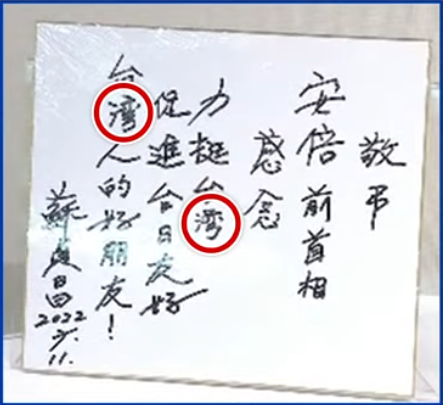 敬弔
安倍前首相
感念
力挺台湾
促進台日友好
台湾人的好朋友！
蘇貞昌
2022.7.11.